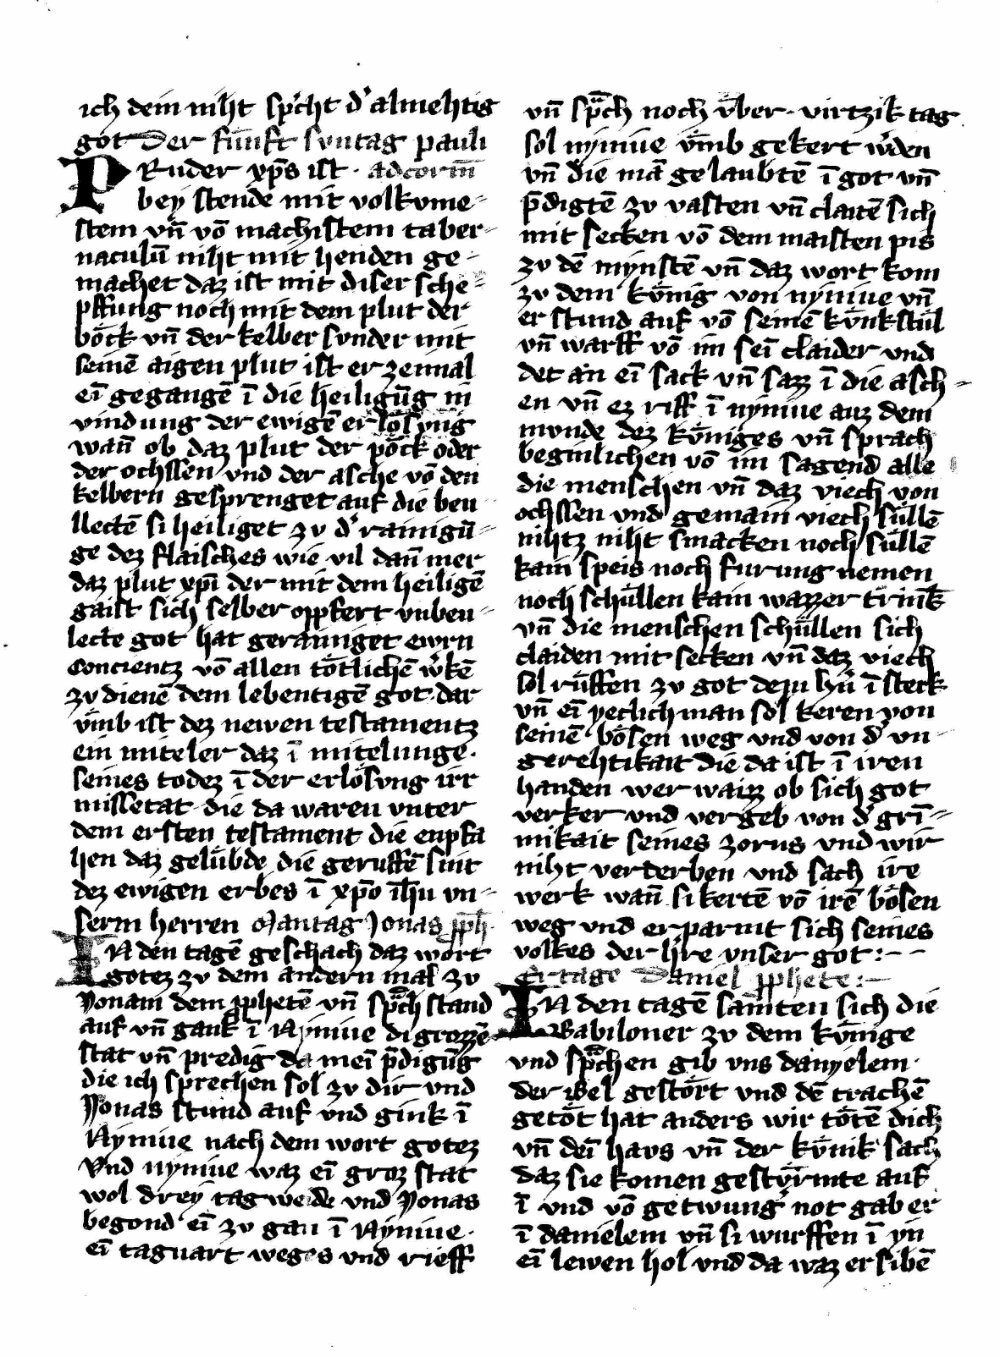 ich dem niht sp̾cht d' almehtig
got Der fu̍nft suntag pauli
PRuder xp̄s ist · ad corin̄
bey stende mit volkume⸗
stem vn̄ vō machistem taber⸗
naculū niht mit henden ge⸗
machet daz ist mit diser sche⸗
pffung noch mit dem plut der
bo̍ck vn̄ der kelber sunder mit
seinē aigen plut ist er zeimal
eī gegangē ī die heiligūg in
vindung der ewigē erlo̍sung
wan̄ ob daz plut der po̍ck oder
der ochssen vnd der asche vō den
kelbern gesprenget auf die beu
llectē si heiliget zv d' rainigū⸗
ge dez flaisches wie vil dan̄ mer
daz plut xp̄i der mit dem heiligē
gaist sich selber opfert vnbeu⸗
lecte got hat gerainiget ewrn
concientz vō allen to̍tlichē w'kē
zv dienē dem lebentigē got dar
vm̄b ist dez newen testamentz
ein miteler daz ī mitelunge ·
seines todez ī der erlo̍sung irr
missetat die da waren vnter
dem ersten testament die enpfa
hen daz gelu̍bde die geruffē sint
dez ewigen erbes ī xp̄o ih̄u vn⸗
serm herren Mantag Jonas p̄ph̄
IN den tagē geschach daz wort
gotez zv dem andern mal zv
Jonam dem p̄phetē vn̄ sp̾ch stand
auf vn̄ gank ī Nynive di grozzē
stat vn̄ predig da mei p̄digūg
die ich sprechen sol zv dir vnd
Jonas stund auf vnd gink ī
Nynive nach dem wort gotez
Vnd nynive waz eī groz stat
wol drey tag weide vnd Jonas
begond eī zv gan ī Nynive ·
eī taguart weges vnd rieff
vn̄ sp̾ch noch v̍ber · virtzik tag
sol nynive vm̄b gekert w'den
vn̄ die mā gelaubtē ī got vn̄
p̄digtē zv vasten vn̄ claitē sich
mit secken vō dem maisten pis
zv dē mynstē vn̄ daz wort kom
zv dem ku̍nig von nynive vn̄
er stund auf vō seinē ku̍nkstu̍l
vn̄ warff vō im seī claider vnd
det an eī sack vn̄ sazz ī die asch⸗
en vn̄ ez riff ī nynive auz dem
munde dez ku̍niges vn̄ sprach
beginlichen vō im sagend alle
die menschen vn̄ daz viech von
ochssen vnd gemain viech su̍llē
nihtz niht smacken noch su̍llē
kain speis noch furung nemen
noch schu̍llen kain wazzer trink
vn̄ die menschen schu̍llen sich
claiden mit secken vn̄ daz viech
sol ru̍ffen zv got dem hr̄n ī sterk
vn̄ eī yeclich man sol keren von
seinē bo̍sen weg vnd von d' vn⸗
gerehtikait die da ist ī iren
handen wer waizz ob sich got
verker vnd vergeb von d' gri⸗
mikait seines zorns vnd wir
niht verterben vnd sach ire
werk wan̄ si kertē vō irē bo̍sen
weg vnd erparmt sich seines
volkes der h're vnser got :⸗
Ertage Daniel p̄phete :⸗
IN den tagē samten sich die
Babiloner zv dem ku̍nige
vnd sp̾chen gib vns danyelem ·
der Bel gesto̍rt vnd dē trachē
geto̍t hat anders wir to̍tē dich
vn̄ deī haus vn̄ der ku̍nik sach
daz sie komen gestu̍rmte auf
ī vnd vō getwung not gab er
ī danielem vn̄ si wurffen ī yn
eī lewen hol vnd da waz er sibē